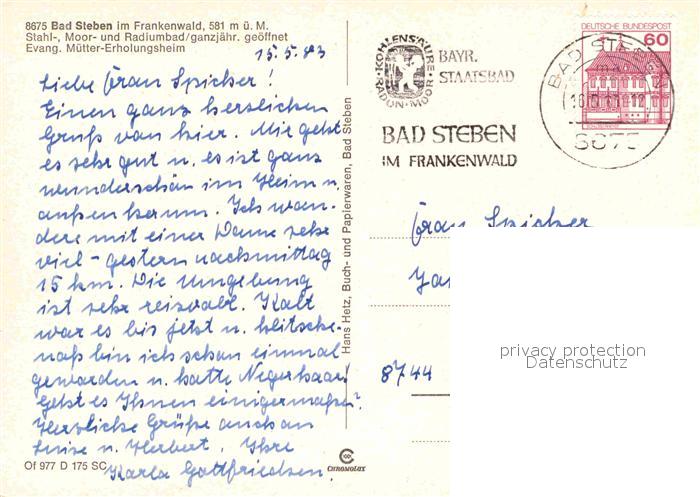 8675 Bad Steben im Frankenwald, 581 m ü. M.
Stahl-, Moor- und Radiumbad/ganzjähr. geöffnet
Evang. Mütter-Erholungsheim
15.5.83
Liebe Frau Spicker!
Einen ganz herzlichen
Gruß von hier. Mir geht
es sehr gut u. es ist ganz
wunderschön im Heim u.
außen herum. Ich wan-
dere mit einer Dame sehr
viel - gestern nachmittag
15 km. Die Umgebung
ist sehr reizvoll. Kalt
war es bis jetzt u. klitsche-
naß bin ich schon einmal
geworden u. hatte Negerhaar!
Geht es Ihnen einigermaßen?
Herzliche Grüße auch an
Luise u. Herbert. Ihre
Karla Gottfriedsen.
Of 977 D 175 SC
CHROMOLUX
Hans Hetz, Buch- und Papierwaren, Bad Steben
KOHLENSÄURE
RADON·MOOR
BAYR.
STAATSBAD
BAD STEBEN
IM FRANKENWALD
DEUTSCHE BUNDESPOST
60
BAD STEBEN
8675
Frau Spicker
8744
privacy protection
Datenschutz